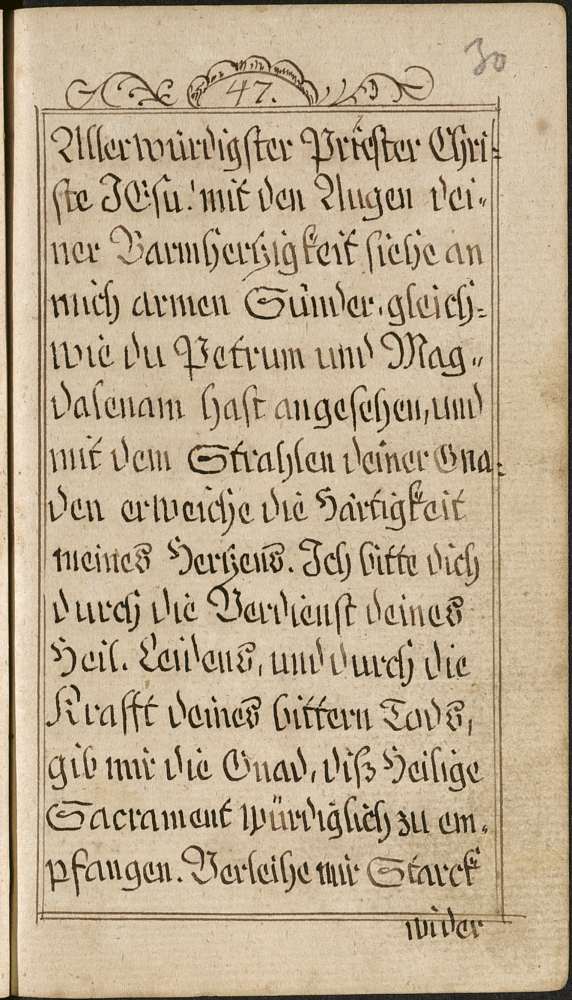 30
47.
Allerwürdigster Priester Chri-
ste JEsu! mit den Augen dei-
ner Barmhertzigkeit siehe an
mich armen Sünder, gleich-
wie du Petrum und Mag-
dalenam hast angesehen, und
mit dem Strahlen deiner Gna-
den erweiche die Härtigkeit
meines Hertzens. Ich bitte dich
durch die Verdienst deines
Heil. Leidens, und durch die
Krafft deines bittern Tods,
gib mir die Gnad, diß Heilige
Sacrament würdiglich zu em-
pfangen. Verleihe mir Starck
wider